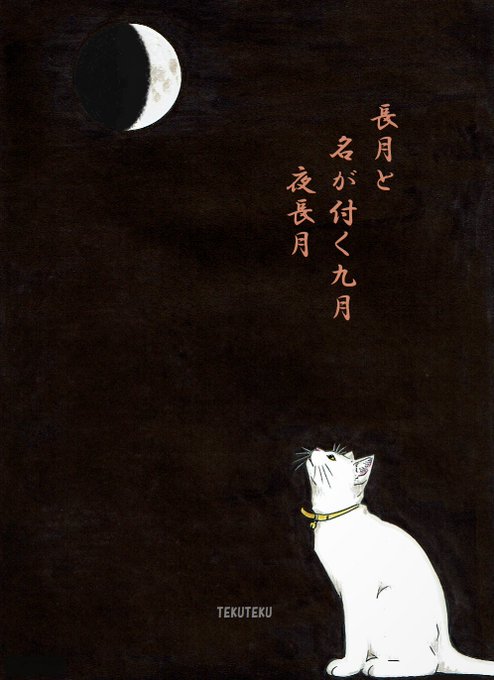 長月と
名が付く九月
夜長月
TEKUTEKU